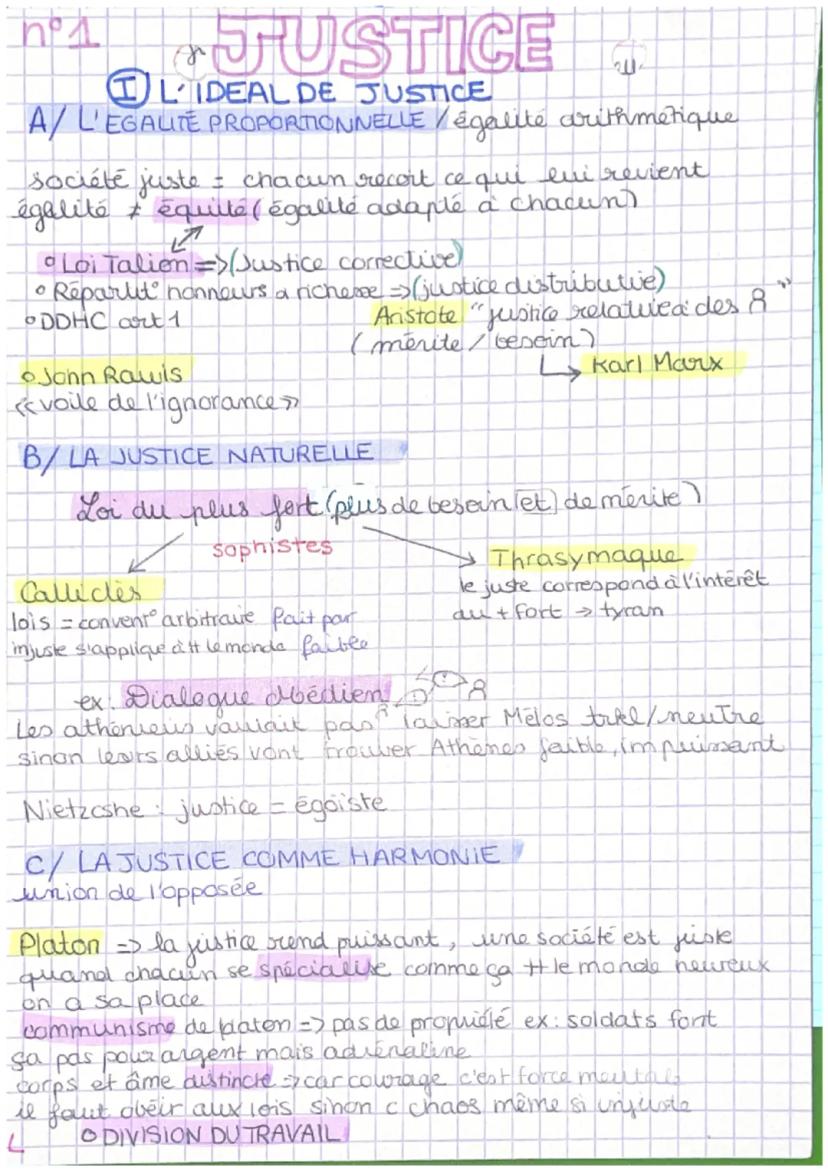 n°1 JUSTICE
I L'IDEAL DE JUSTICE
A/ L'EGALITÉ PROPORTIONNELLE / égalité arithmétique
société juste = chacun reçoit ce qui lui revient
égalité ≠ équité (égalité adapté à chacun)
° Loi Talion => (Justice corrective)
° Répartit° honneurs a richesse => (justice distributive)
° DDHC art 1
Aristote "justice relative à des
(mérite / besoin)
Karl Marx
° John Rawls
<< voile de l'ignorance >>
B/ LA JUSTICE NATURELLE
Loi du plus fort (plus de besoin et de mérite)
sophistes
Calliclès
lois = convent° arbitraire fait par
injuste s'applique à tt le monde faible
Thrasymaque
le juste correspond à l'intérêt
du + fort → tyran
ex: Dialogue Médien
Les athéniens voulait pas laisser Mélos trkl/neutre
sinon leurs alliés vont trouver Athènes faible, impuissant
Nietzcshe : justice = égoïste
C/ LA JUSTICE COMME HARMONIE
union de l'opposée
Platon => la justice rend puissant, une société est juste
quand chacun se spécialise comme ça tt le monde heureux
on a sa place
communisme de platon => pas de propriété ex: soldats font
ça pas pour argent mais adrénaline
corps et âme distincte => car courage c'est force mentale
il faut obéir aux lois sinon c chaos même si injuste
° DIVISION DU TRAVAIL